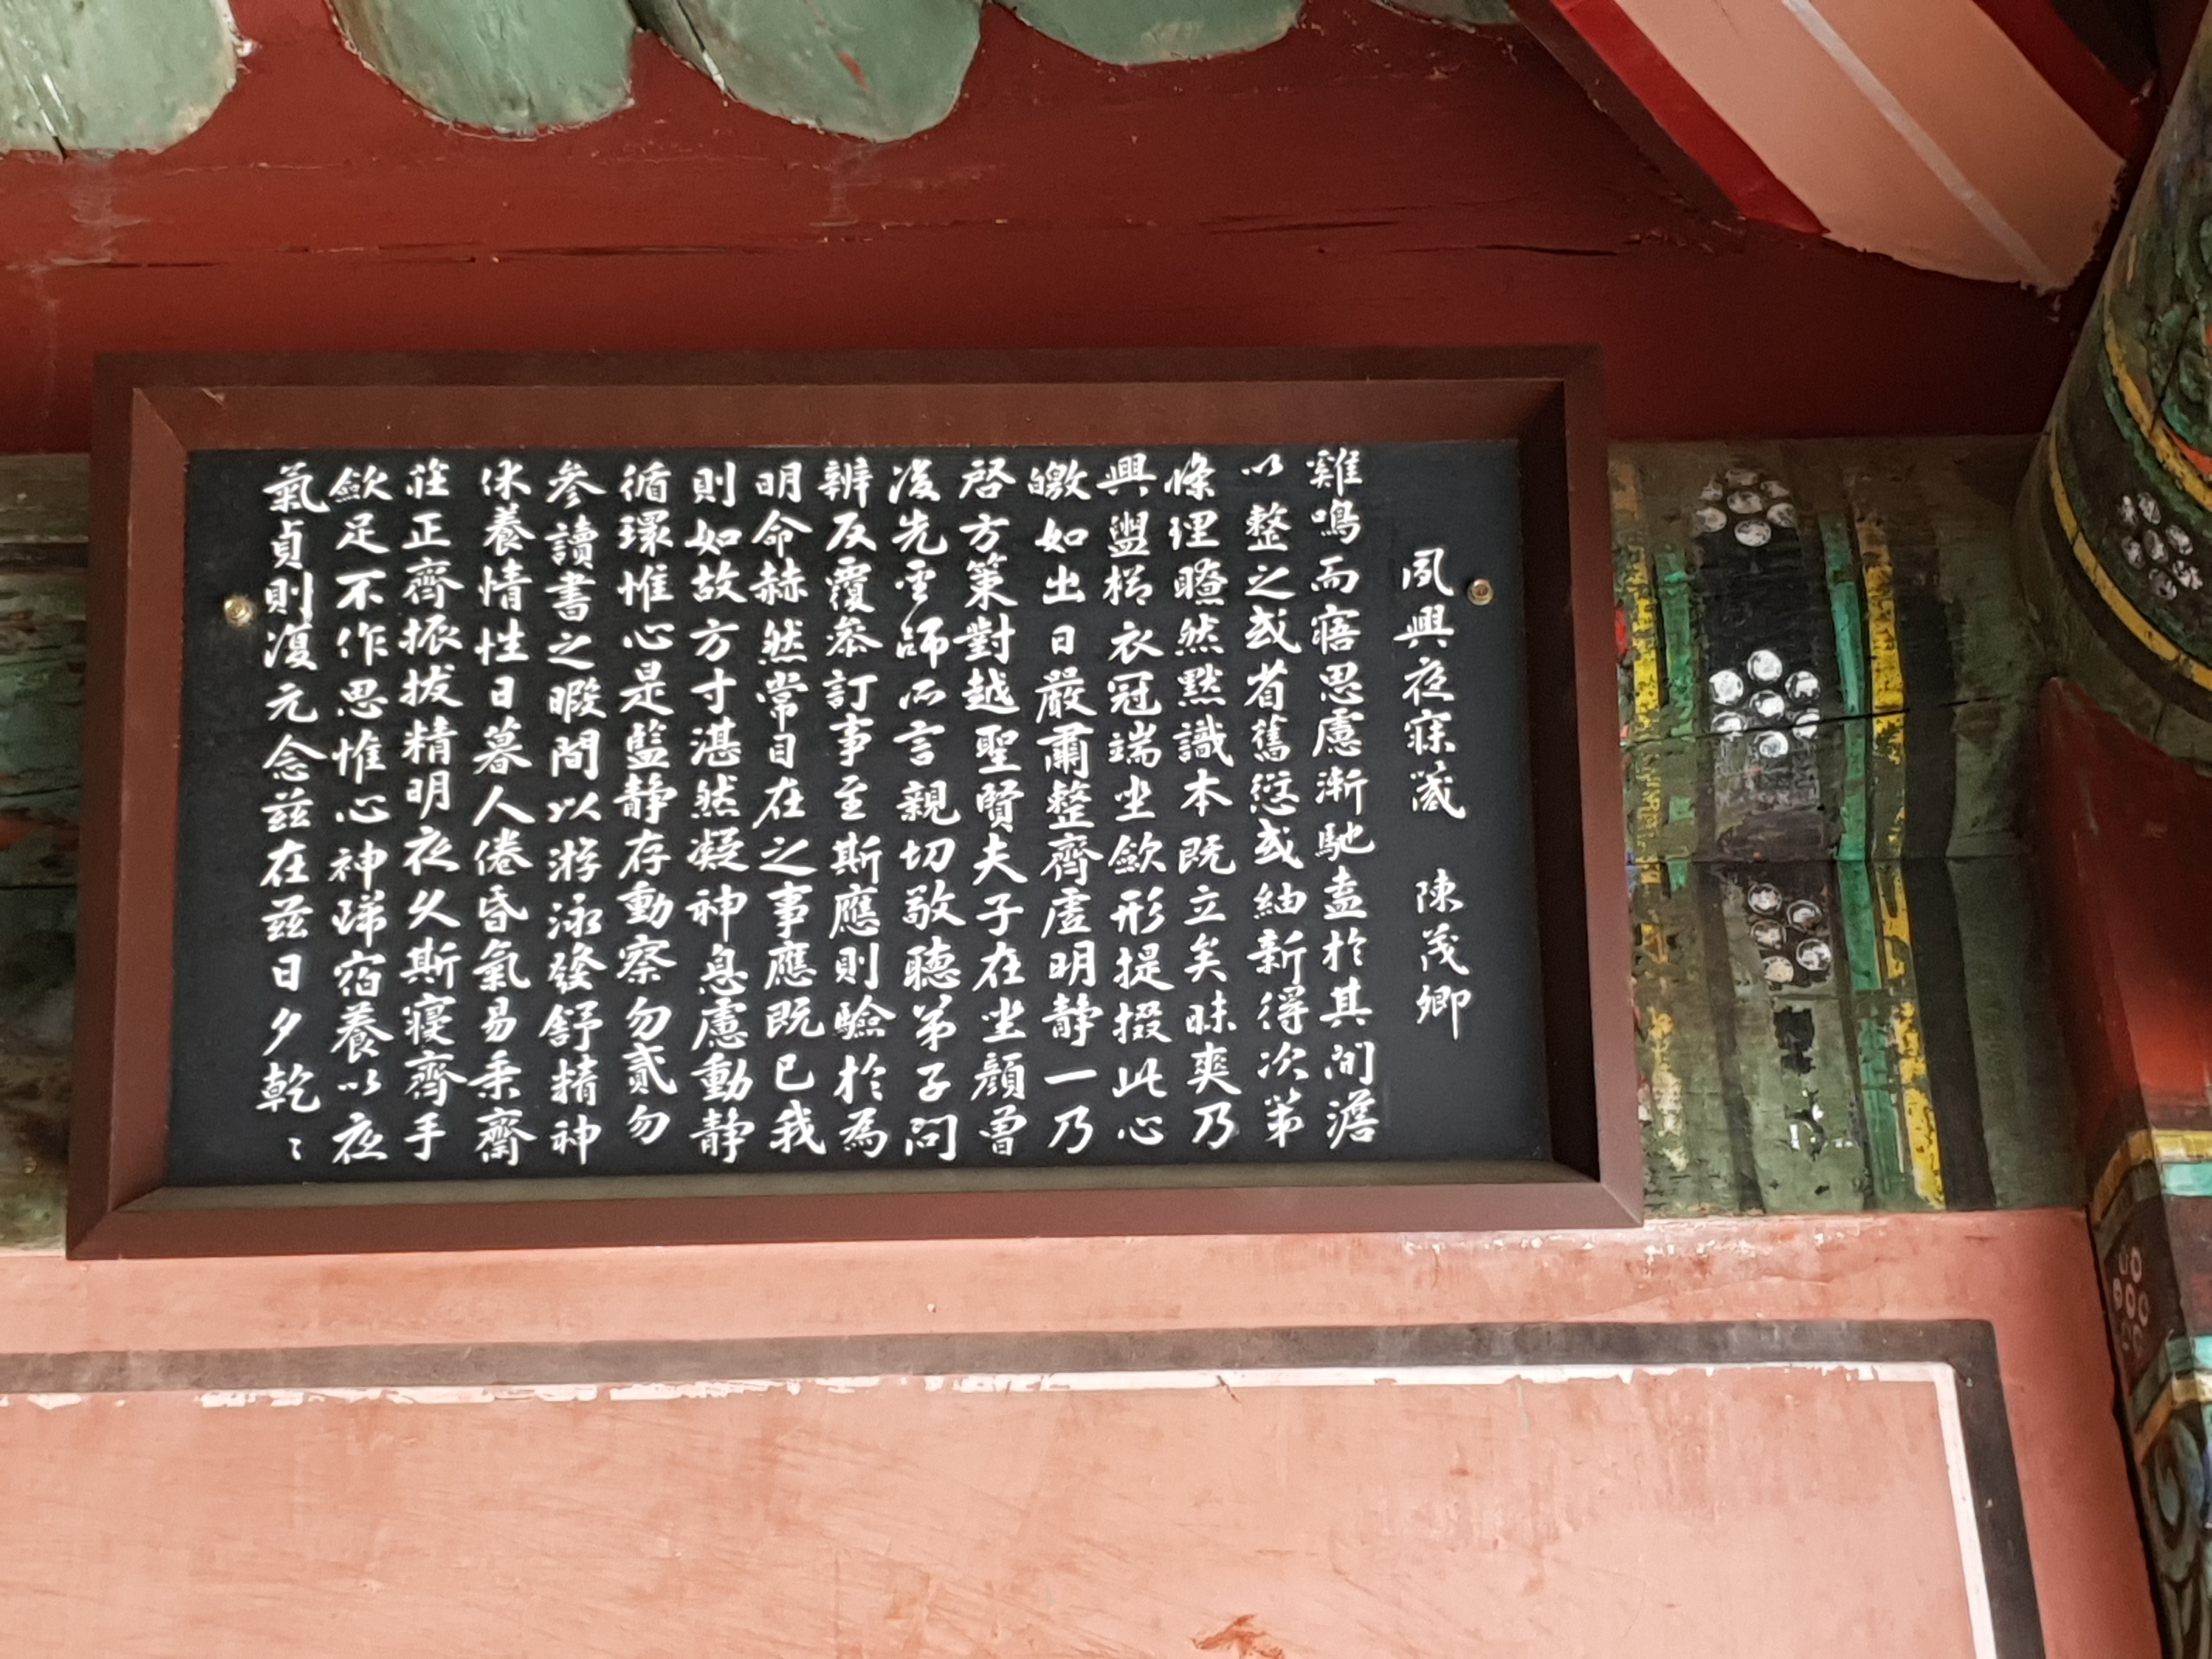 夙興夜寐箴 陳茂卿
雞鳴而寤思慮漸馳盍於其間澹
以整之或省舊愆或紬新得次第
條理瞭然默識本既立矣昧爽乃
興盥櫛衣冠端坐斂形提掇此心
皦如出日嚴肅整齊虛明靜一乃
啓方策對越聖賢夫子在坐顏曾
後先聖師所言親切敬聽弟子問
辨反覆參訂事至斯應則驗於為
明命赫然常目在之事應既已我
則如故方寸湛然凝神息慮動靜
循環惟心是監靜存動察勿貳勿
參讀書之暇間以游泳發舒精神
休養情性日暮人倦昏氣易乘齋
莊正齊振拔精明夜久斯寢齊手
斂足不作思惟心神歸宿養以夜
氣貞則復元念茲在茲日夕乾〻